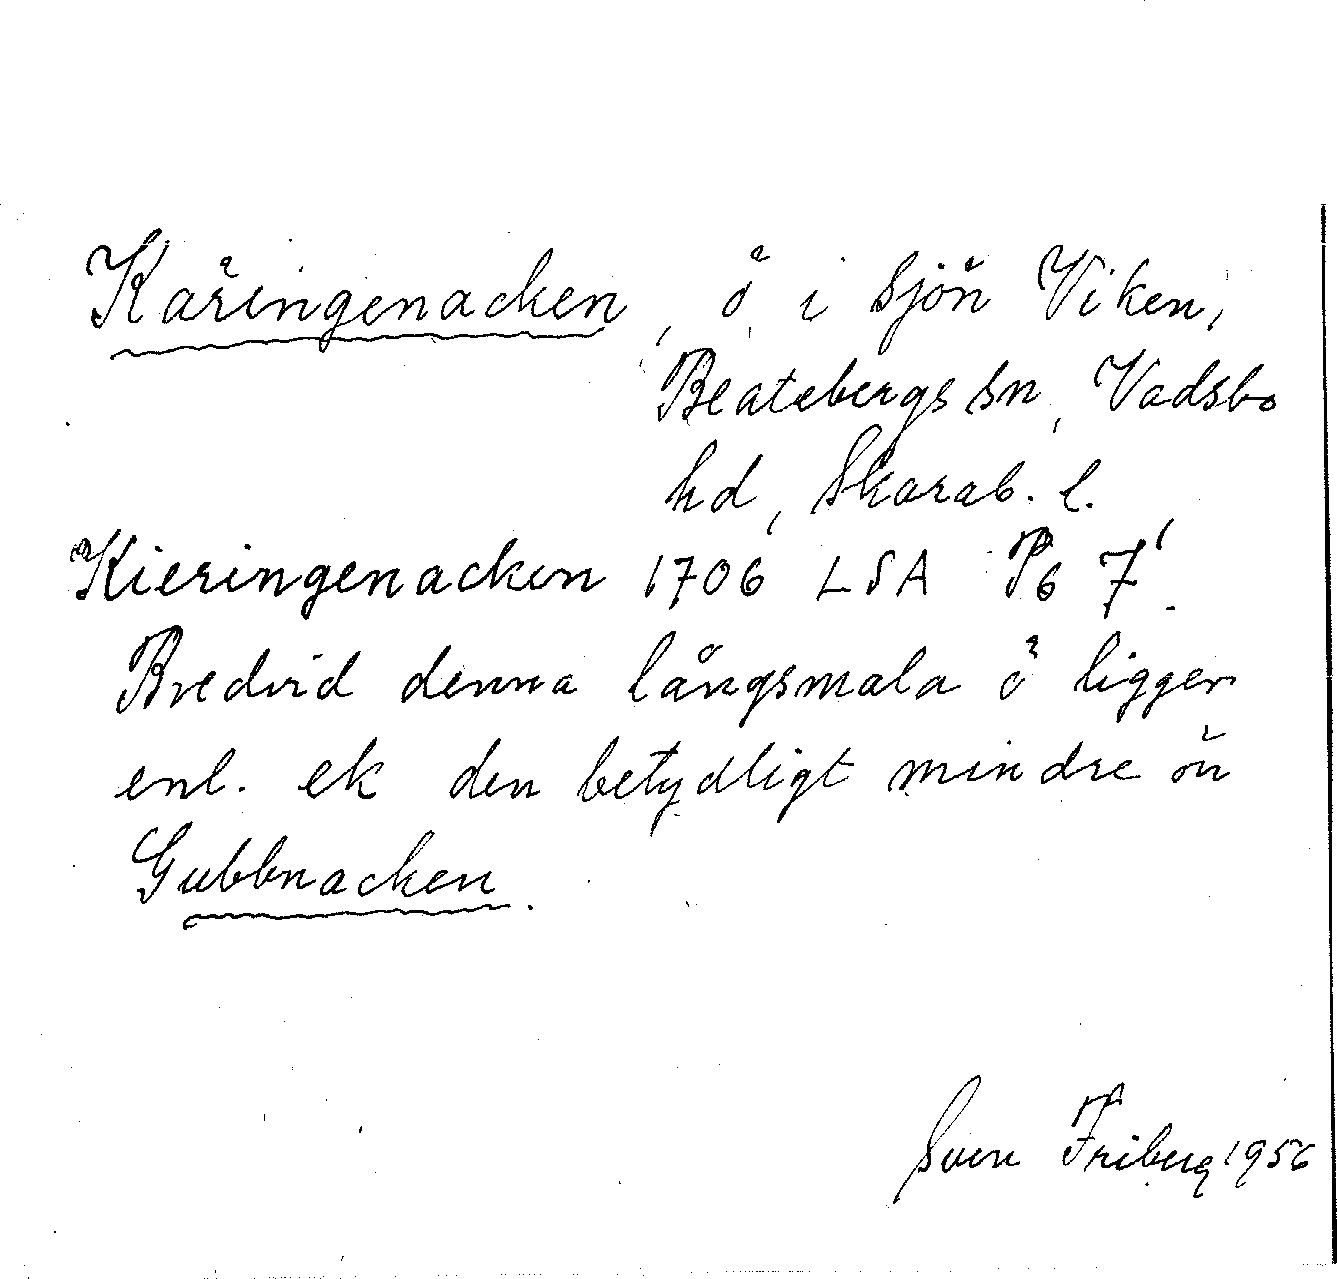 Käringenacken, ö i sjön Viken,
Beatebergs sn, Vadsbo
hd, Skarab. l.
Kieringenacken 1706 LSA P6 7¹.
Bredvid denna långsmala ö ligger
enl. ek den betydligt mindre ön
Gubbnacken.
Sven Friberg 1956